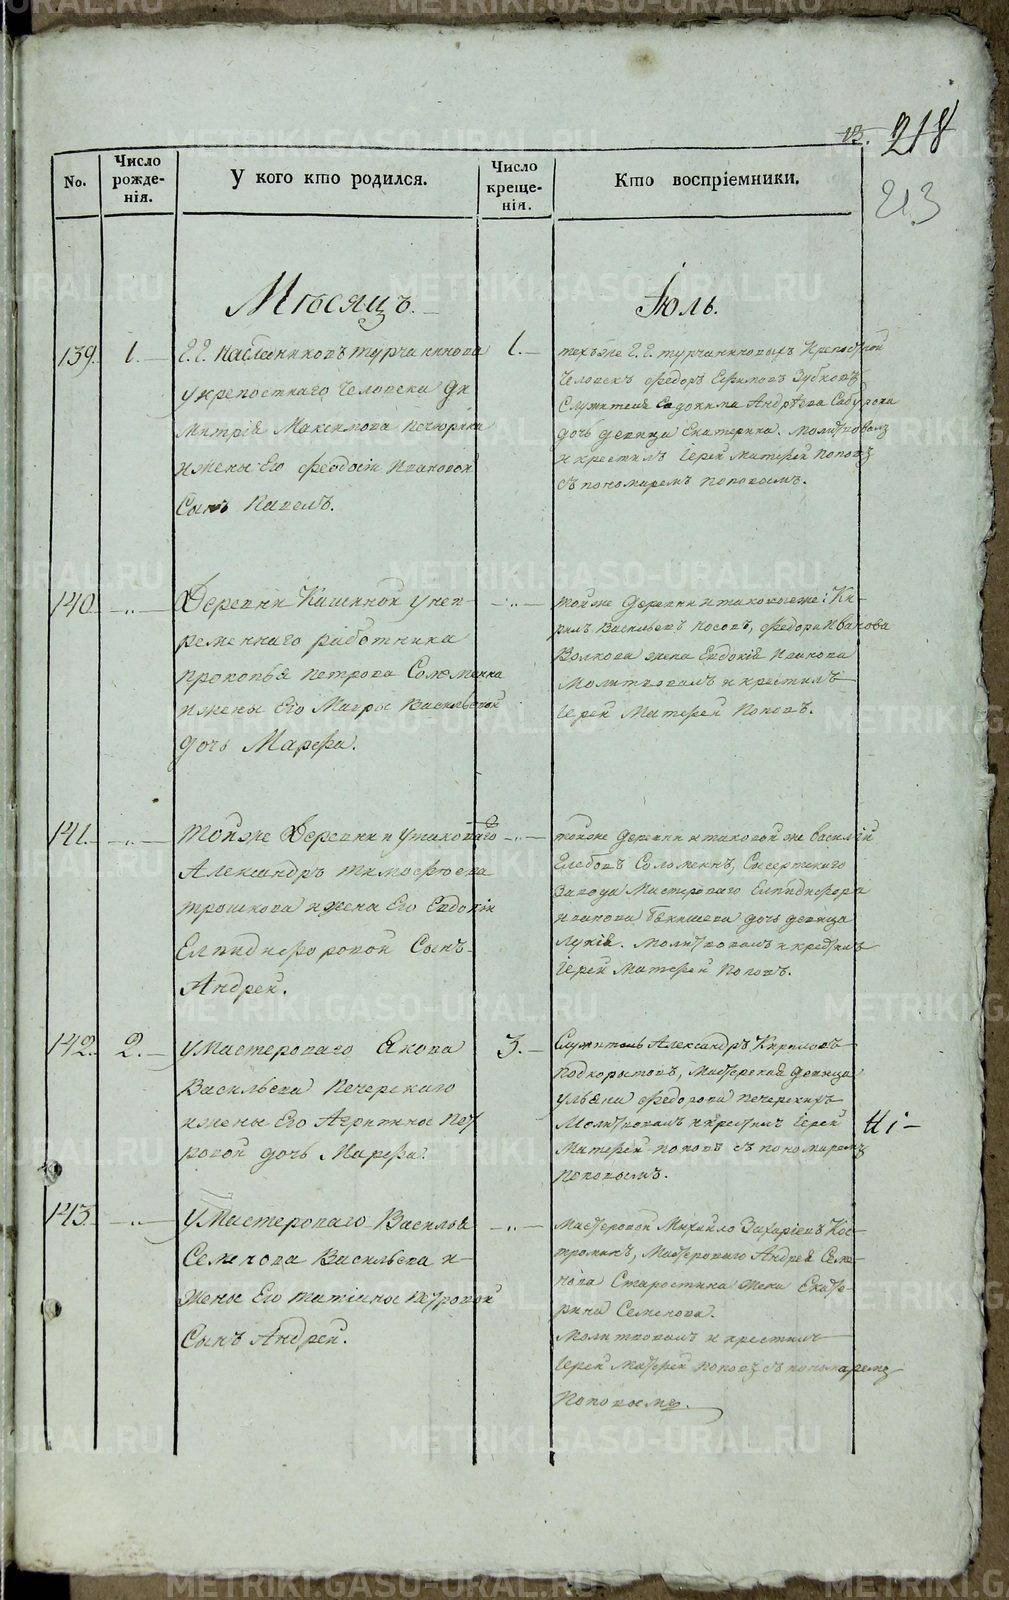 13. 218
213
No.
Число рожде-нія.
У кого кто родился.
Число креще-нія.
Кто воспріемники.
Мѣсяцъ.
Іюль.
139. 1.
Г. Г. наследниковъ турчанинова
у крепостнаго человека Ди
митрія Максимова Печюрина
и жены Его феодосіи Ивановой
Сынъ Павелъ.
1.
техъ же Г. Г. турчаниновыхъ Крепостной
человекъ федоръ Ефимовъ Зубковъ
Служителя Евдокима Андрѣева Сабурова
дочь девица Екатерина. молитвовалъ
и крестилъ Іерей матфей поповъ
съ пономаремъ поповымъ.
140. -„-
Деревни Кашиной у неп-
ременнаго работника
прокопья петрова Соломеина
и жены Его Мавры Васильевой
дочь Марфа.
-„-
тойже деревни и таковые же: Ки-
рилъ Васильевъ носовъ, федора Иванова
Волкова жена Евдокія Иванова
Молитвовалъ и крестилъ
Іерей Матфей Поповъ.
141. -„-
тойже Деревни у таковаго
Александръ тимофѣева
трошкова и жена Его Евдокіи
Елпидифоровой Сынъ
Андрей.
-„-
тойже деревни и таковой же василій
Глебовъ Соломеинъ, Сысертскаго
Завода Мастероваго Елпидифора
иванова бекишева дочь девица
Лукія. молитвовалъ и крестилъ
Іерей Матфей Поповъ.
142. 2.
У Мастероваго Якова
Васильева Печерскаго
и жены Его Агрипины Пет
ровой дочь Марфа.
3.
Служитель Александръ Кириловъ
Подкорытовъ, Мастерская девица
ульяна федорова печерскихъ
Молитвовалъ и крестилъ Іерей
Матфей поповъ съ пономаремъ
поповымъ.
143. -„-
У Мастероваго Василья
Семенова Васильева и
жены Его татіаны петровой
Сынъ Андрей.
-„-
мастеровой Михайло Захаріевъ Кос-
троминъ, Мастероваго Андрея Семе-
нова Старостина жена Екате-
рина Семенова.
Молитвовалъ и крестилъ
Іерей Матфей поповъ съ пономаремъ
Поповымъ.